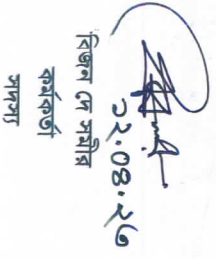 ১২.০৪.২৩
বিজন দে সমীর
কর্মকর্তা
সদস্য